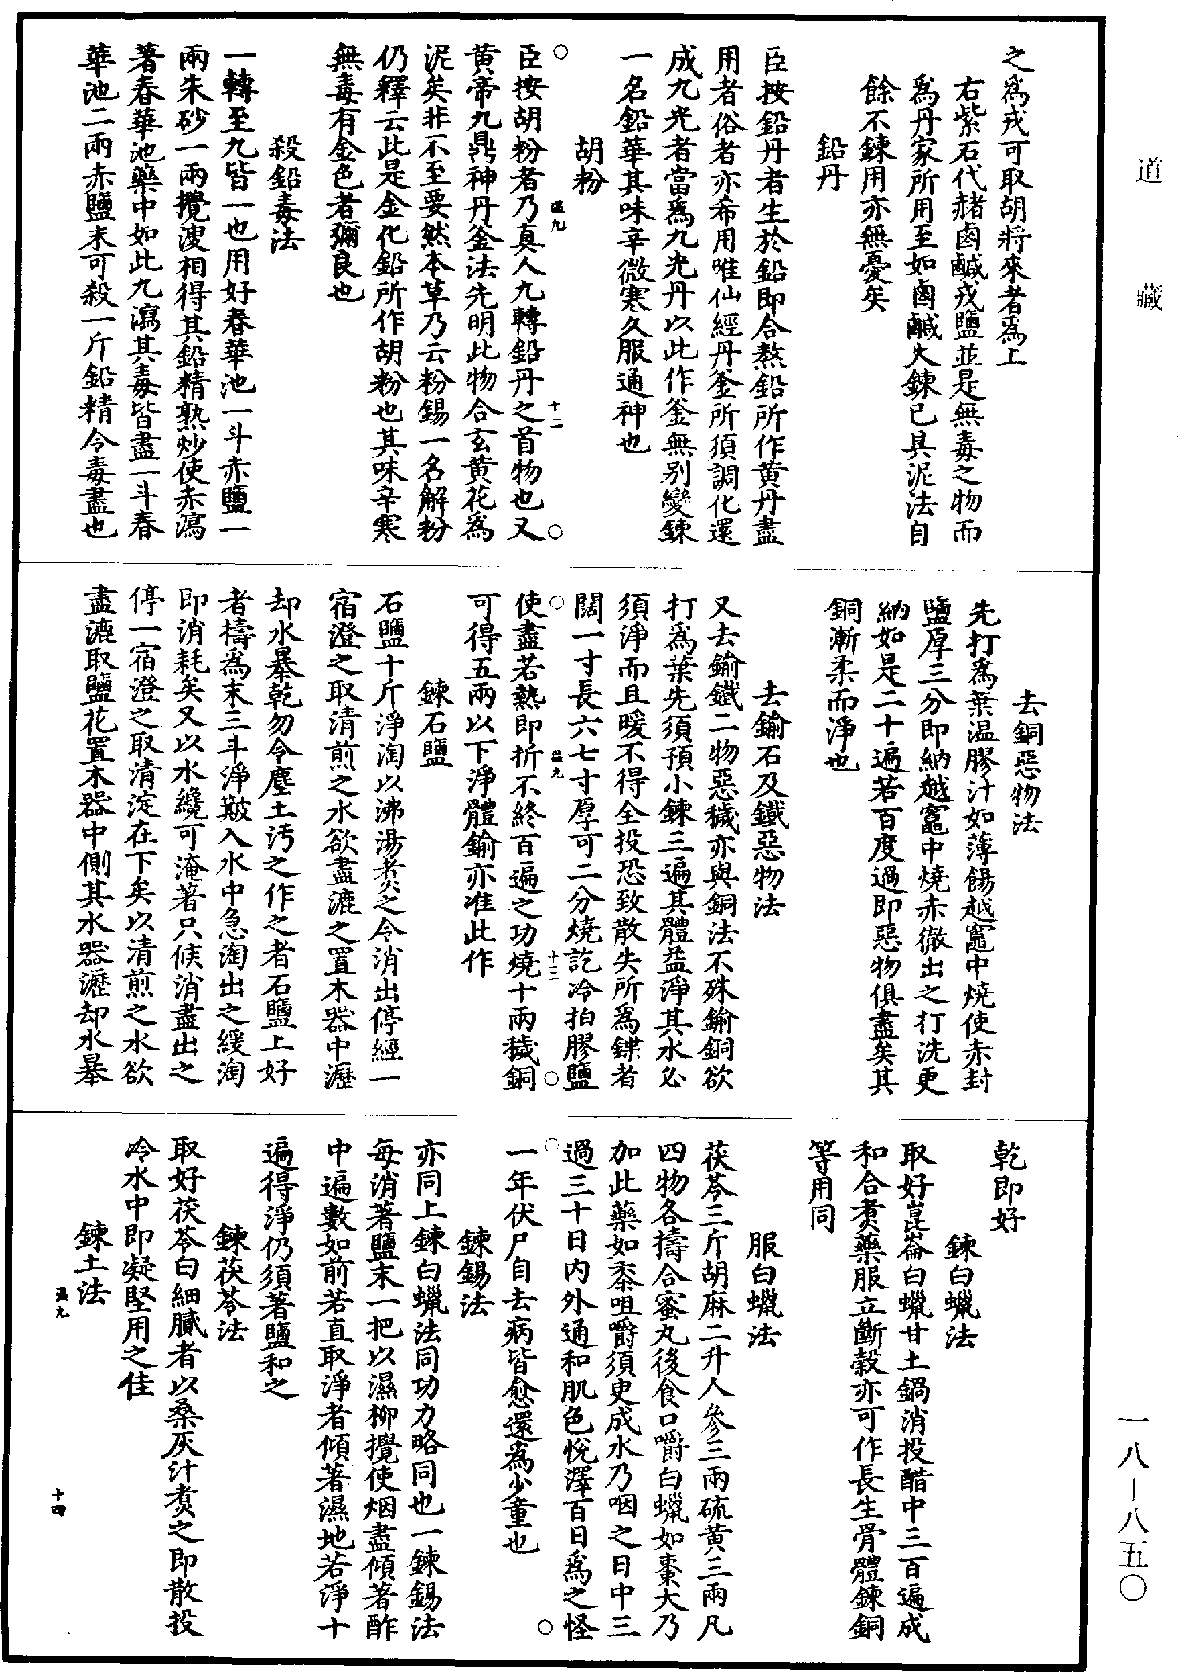 道藏
之為戎可取胡將來者為上
右紫石代赭鹵鹹戎鹽並是無毒之物而
為丹家所用至如鹵鹹火鍊已具泥法自
餘不鍊用亦無憂矣
鉛丹
臣按鉛丹者生於鉛即合熬鉛所作黃丹盡
用者俗者亦希用唯仙經丹釜所須調化還
成九光者當為九光丹以此作釜無別變鍊
一名鉛華其味辛微寒久服通神也
胡粉
臣按胡粉者乃真人九轉鉛丹之首物也又
溫九
十二
黃帝九鼎神丹釜法先明此物合玄黃花為
泥矣非不至要然本草乃云粉錫一名解粉
仍釋云此是金化鉛所作胡粉也其味辛寒
無毒有金色者彌良也
殺鉛毒法
一轉至九皆一也用好春華池一斗赤鹽一
兩朱砂一兩攪溲相得其鉛精熟炒使赤瀉
著春華池藥中如此九瀉其毒皆盡一斗春
華池二兩赤鹽末可殺一斤鉛精令毒盡也
去銅惡物法
先打為葉溫膠汁如薄餳越竈中燒使赤封
鹽厚三分即納越竈中燒赤徹出之打洗更
納如是二十遍若百度過即惡物俱盡矣其
銅漸柔而淨也
去鍮石及鐵惡物法
又去鍮鐵二物惡穢亦與銅法不殊鍮銅欲
打為葉先須預小鍊三遍其體益淨其水必
須淨而且暖不得全投恐致散失所為鍱者
闊一寸長六七寸厚可二分燒訖冷拍膠鹽
使盡若熟即折不終百遍之功燒十兩穢銅
溫九
十三
可得五兩以下淨體鍮亦准此作
鍊石鹽
石鹽十斤淨淘以沸湯煮之令消出停經一
宿澄之取清煎之水欲盡漉之置木器中瀝
却水暴乾勿令塵土污之作之者石鹽上好
者擣為末三斗淨皺入水中急淘出之緩淘
即消耗矣又以水纔可淹著只候消盡出之
停一宿澄之取清淀在下矣以清煎之水欲
盡漉取鹽花置木器中側其水器瀝却水暴
乾即好
鍊白蠟法
取好崑崙白蠟甘土鍋消投醋中三百遍成
和合煮藥服立斷穀亦可作長生骨體鍊銅
等用同
服白蠟法
茯苓三斤胡麻二升人參三兩硫黃三兩凡
四物各擣合蜜丸後食口嚼白蠟如棗大乃
加此藥如黍咀嚼須史成水乃咽之日中三
過三十日內外通和肌色悅澤百日為之怪
一年伏尸自去病皆愈還為少童也
鍊錫法
亦同上鍊白蠟法同功力略同也一鍊錫法
每消著鹽末一把以濕柳攪使烟盡傾著酢
中遍數如前若直取淨者傾著濕地若淨十
遍得淨仍須著鹽和之
鍊茯苓法
取好茯苓白細膩者以桑灰汁煮之即散投
冷水中即凝堅用之佳
鍊土法
溫九
十四
一八—八五〇